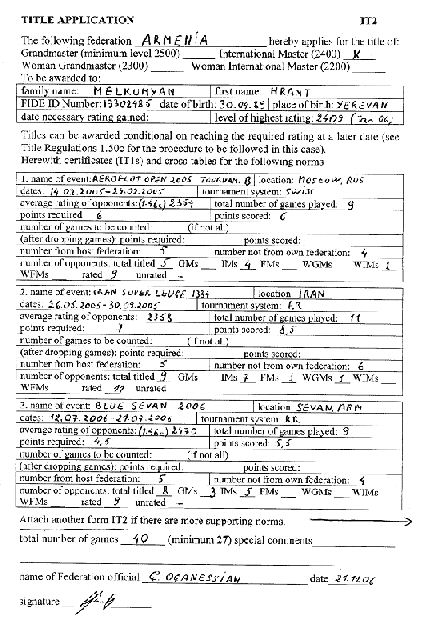 TITLE APPLICATION IT2
The following federation ARMENIA hereby applies for the title of:
Grandmaster (minimum level 2500) International Master (2400) X
Woman Grandmaster (2300) Woman International Master (2200)
To be awarded to:
family name: MELKUMYAN first name: HRANT
FIDE ID Number: 13302485 date of birth: 30.04.89 place of birth: YEREVAN
date necessary rating gained: level of highest rating: 2409
Titles can be awarded conditional on reaching the required rating at a later date (see
Title Regulations 1.50c for the procedure to be followed in this case).
Herewith certificates (IT1s) and cross tables for the following norms
1. name of event: AEROFLOT OPEN 2005 B location: MOSCOW, RUS
dates: 14.02.2005-23.02.2005 tournament system: SWISS
average rating of opponents: 2354 total number of games played: 9
points required 6 points scored: 6
number of games to be counted (if not all)
(after dropping games): points required: points scored:
number from host federation: 5 number not from own federation: 4
number of opponents: total titled 5 GMs IMs 4 FMs WGMs WIMs 1
WFMs rated 9 unrated -
2. name of event: IRAN SUPER LEAGUE location IRAN
dates: tournament system: RR
average rating of opponents: 2358 total number of games played: 11
points required: 7 points scored: 8,5
number of games to be counted: (if not all)
(after dropping games): points required: points scored:
number from host federation: 5 number not from own federation: 6
number of opponents: total titled 9 GMs IMs 7 FMs 1 WGMs 1 WIMs
WFMs rated unrated
3. name of event: BLUE SEVAN 2006 location SEVAN, ARM
dates: tournament system: RR
average rating of opponents: total number of games played: 9
points required: 4,5 points scored: 5,5
number of games to be counted: (if not all)
(after dropping games): points required: points scored:
number from host federation: 5 number not from own federation: 4
number of opponents: total titled 8 GMs 3 IMs 5 FMs WGMs WIMs
WFMs rated 9 unrated -
Attach another form IT2 if there are more supporting norms.
total number of games 40 (minimum 27) special comments
name of Federation official G. OGANESSIAN date 21.12.06
signature